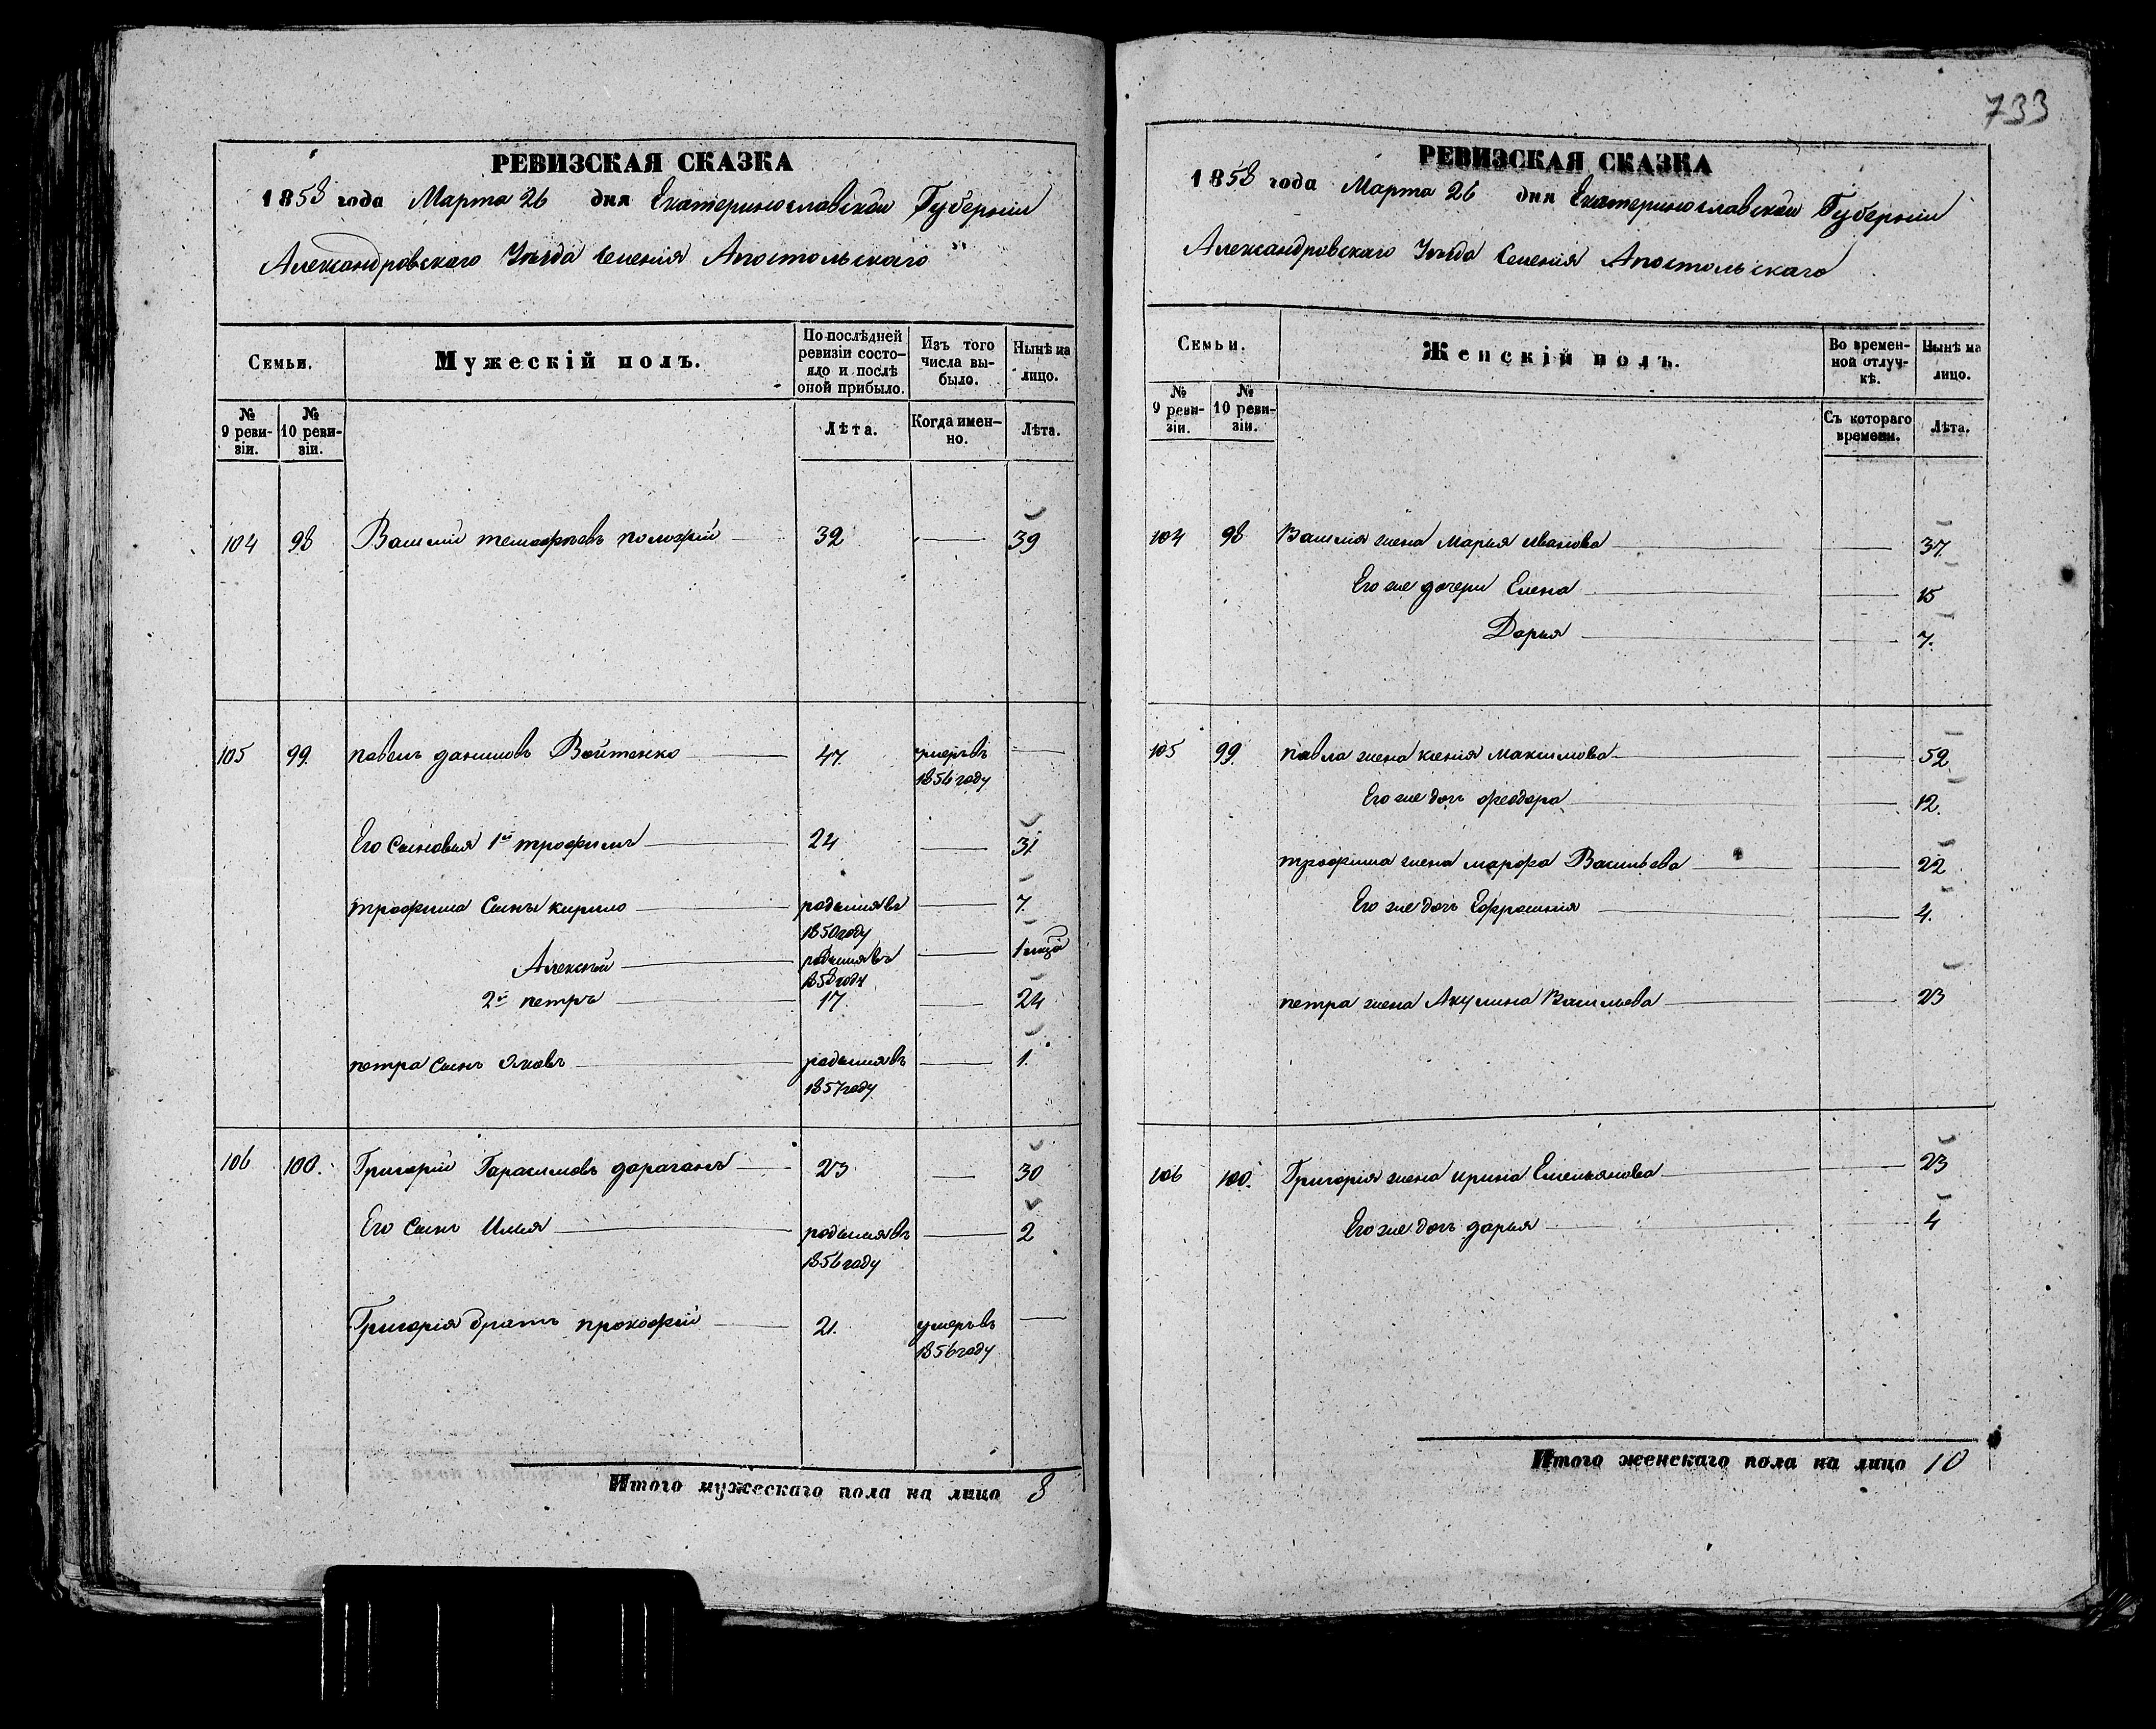 733
РЕВИЗСКАЯ СКАЗКА
1858 года Марта 26 дня Екатеринославской Губерніи
Александровскаго Уѣзда Селенія Апостольскаго
Семьи.
Мужескій полъ.
По послѣдней ревизіи состояло и послѣ оной прибыло.
Изъ того числа выбыло.
Нынѣ на лицо.
№ 9 ревизіи.
№ 10 ревизіи.
Лѣта.
Когда именно.
Лѣта.
104 98 Василій 32 — 39
105 99. павелъ даниловъ Войтенко 47. умеръ въ 1856 году —
Его Сыновья 1й трофимъ 24 — 31
трофима Сынъ кирило родился въ 1850 году — 7.
Алексѣй родился въ 1858 году — 1 мца
2й петръ 17 — 24
петра Сынъ Яковъ родился въ 1857 году — 1.
106 100. Григорій Гарасимовъ дараганъ 23 — 30
Его Сынъ Илья родился въ 1856 году — 2
Григорія братъ прокофій 21. умеръ въ 1856 году —
Итого мужескаго пола на лицо 8
РЕВИЗСКАЯ СКАЗКА
1858 года Марта 26 дня Екатеринославской Губерніи
Александровскаго Уѣзда Селенія Апостольскаго
Семьи.
Женскій полъ.
Во временной отлучкѣ.
Нынѣ на лицо.
№ 9 ревизіи.
№ 10 ревизіи.
Съ котораго времени.
Лѣта.
104 98 Василія жена Марья Иванова — 37.
Его же дочери Елена — 15
Дарья — 7.
105 99. павла жена ксенія Максимова — 52
Его же дочь феодора — 12.
трофима жена марфа Васильева — 22
Его же дочь Ефросинія — 4.
петра жена Акулина Васильева — 23
106 100. Григорія жена ирина Емельянова — 23
Его же дочь дарья — 4
Итого женскаго пола на лицо 10